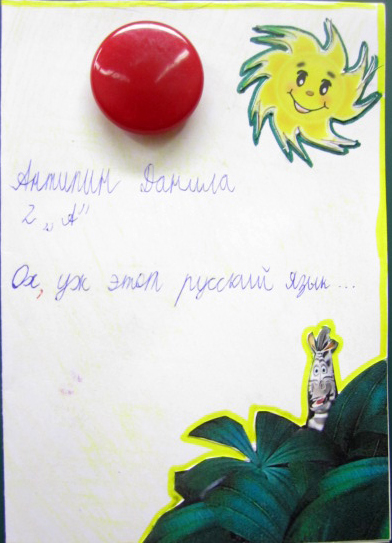 Антипин Данила
2 „А"
Ох, уж этот русский язык...